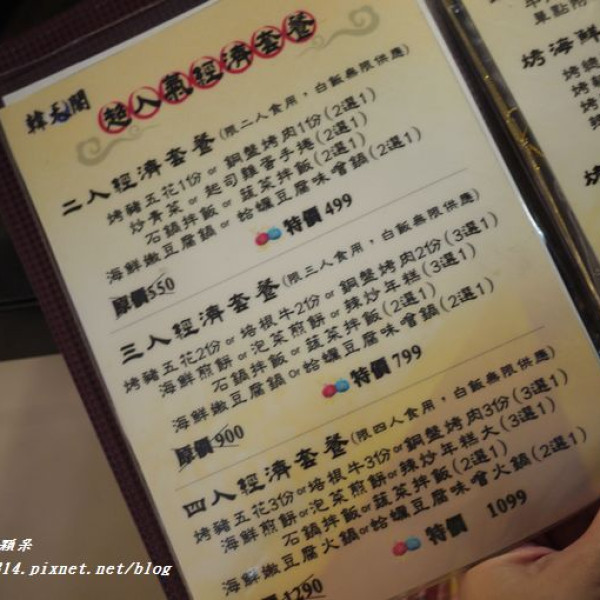 韓天閣
超人氣經濟套餐
二人經濟套餐(限二人食用，白飯無限供應)
烤豬五花1份or銅盤烤肉1份(2選1)
炒青菜or起司雞蛋手捲(2選1)
石鍋拌飯or蔬菜拌飯(2選1)
海鮮嫩豆腐鍋or蛤蠣豆腐味噌鍋(2選1)
原價550
特價499
三人經濟套餐(限三人食用，白飯無限供應)
烤豬五花2份or培根牛2份or銅盤烤肉2份(3選1)
海鮮煎餅or泡菜煎餅or辣炒年糕(3選1)
石鍋拌飯or蔬菜拌飯(2選1)
海鮮嫩豆腐鍋or蛤蠣豆腐味噌鍋(2選1)
原價900
特價799
四人經濟套餐(限四人食用，白飯無限供應)
烤豬五花3份or培根牛3份or銅盤烤肉3份(3選1)
海鮮煎餅or泡菜煎餅or辣炒年糕大(3選1)
石鍋拌飯or蔬菜拌飯(2選1)
海鮮嫩豆腐火鍋or蛤蠣豆腐味噌火鍋(2選1)
原價1290
特價 1099
單點附
烤海鮮
烤
烤
烤
穎呆
314.pixnet.net/blog